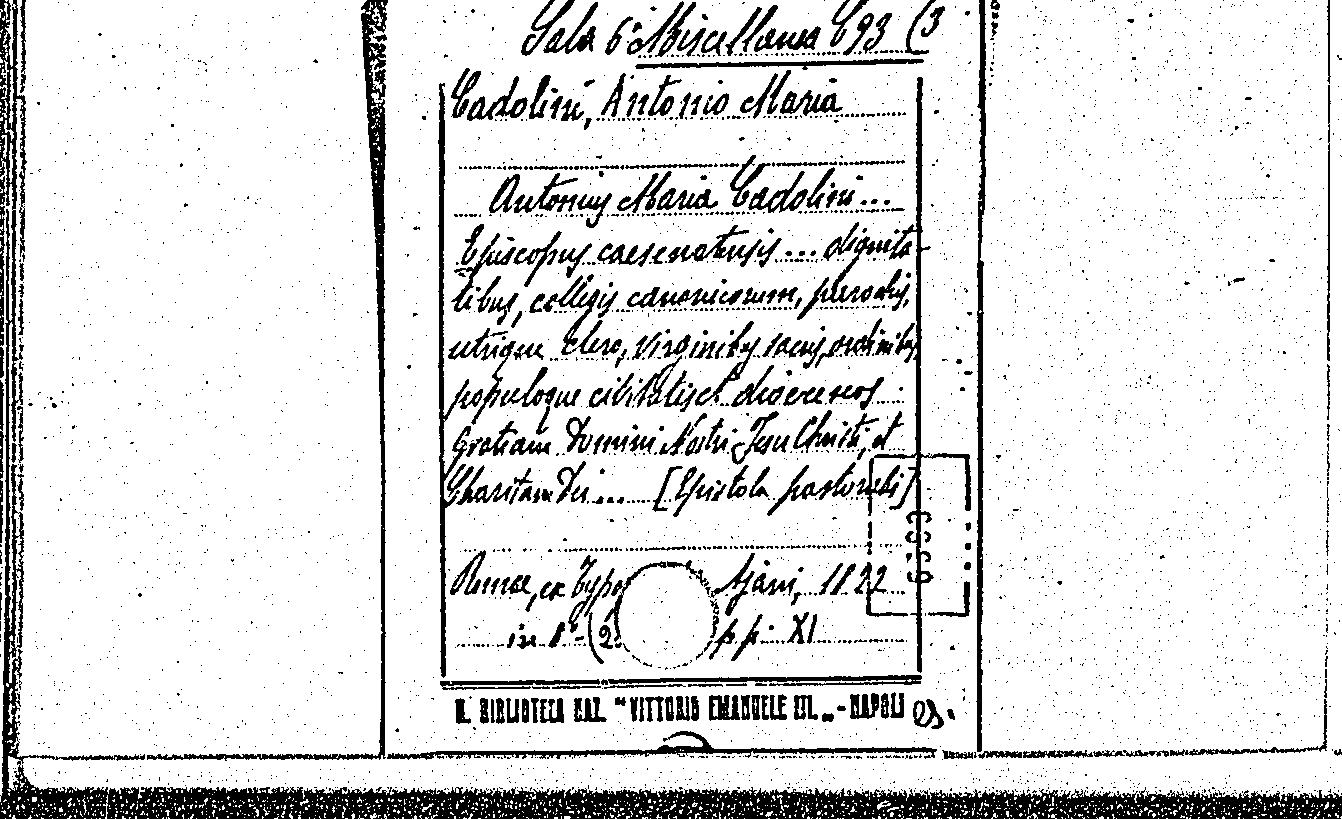 Sala 6ª Miscellanea C93 (3
Cadolini, Antonio Maria
Antonius Maria Cadolini...
Episcopus caesenatensis... dignita-
tibus, collegis canonicorum, parochis,
utrique clero, virginibus sacris, ordinibus
populoque civitatis et dioeceseos
Gratiam Domini Nostri Jesu Christi, et
Charitam Dei... [Epistola pastoralis]
Romae, ex Typo Ajani, 1822
in 8°-(2. pp. XI
R. BIBLIOTECA NAZ. "VITTORIO EMANUELE III." - NAPOLI